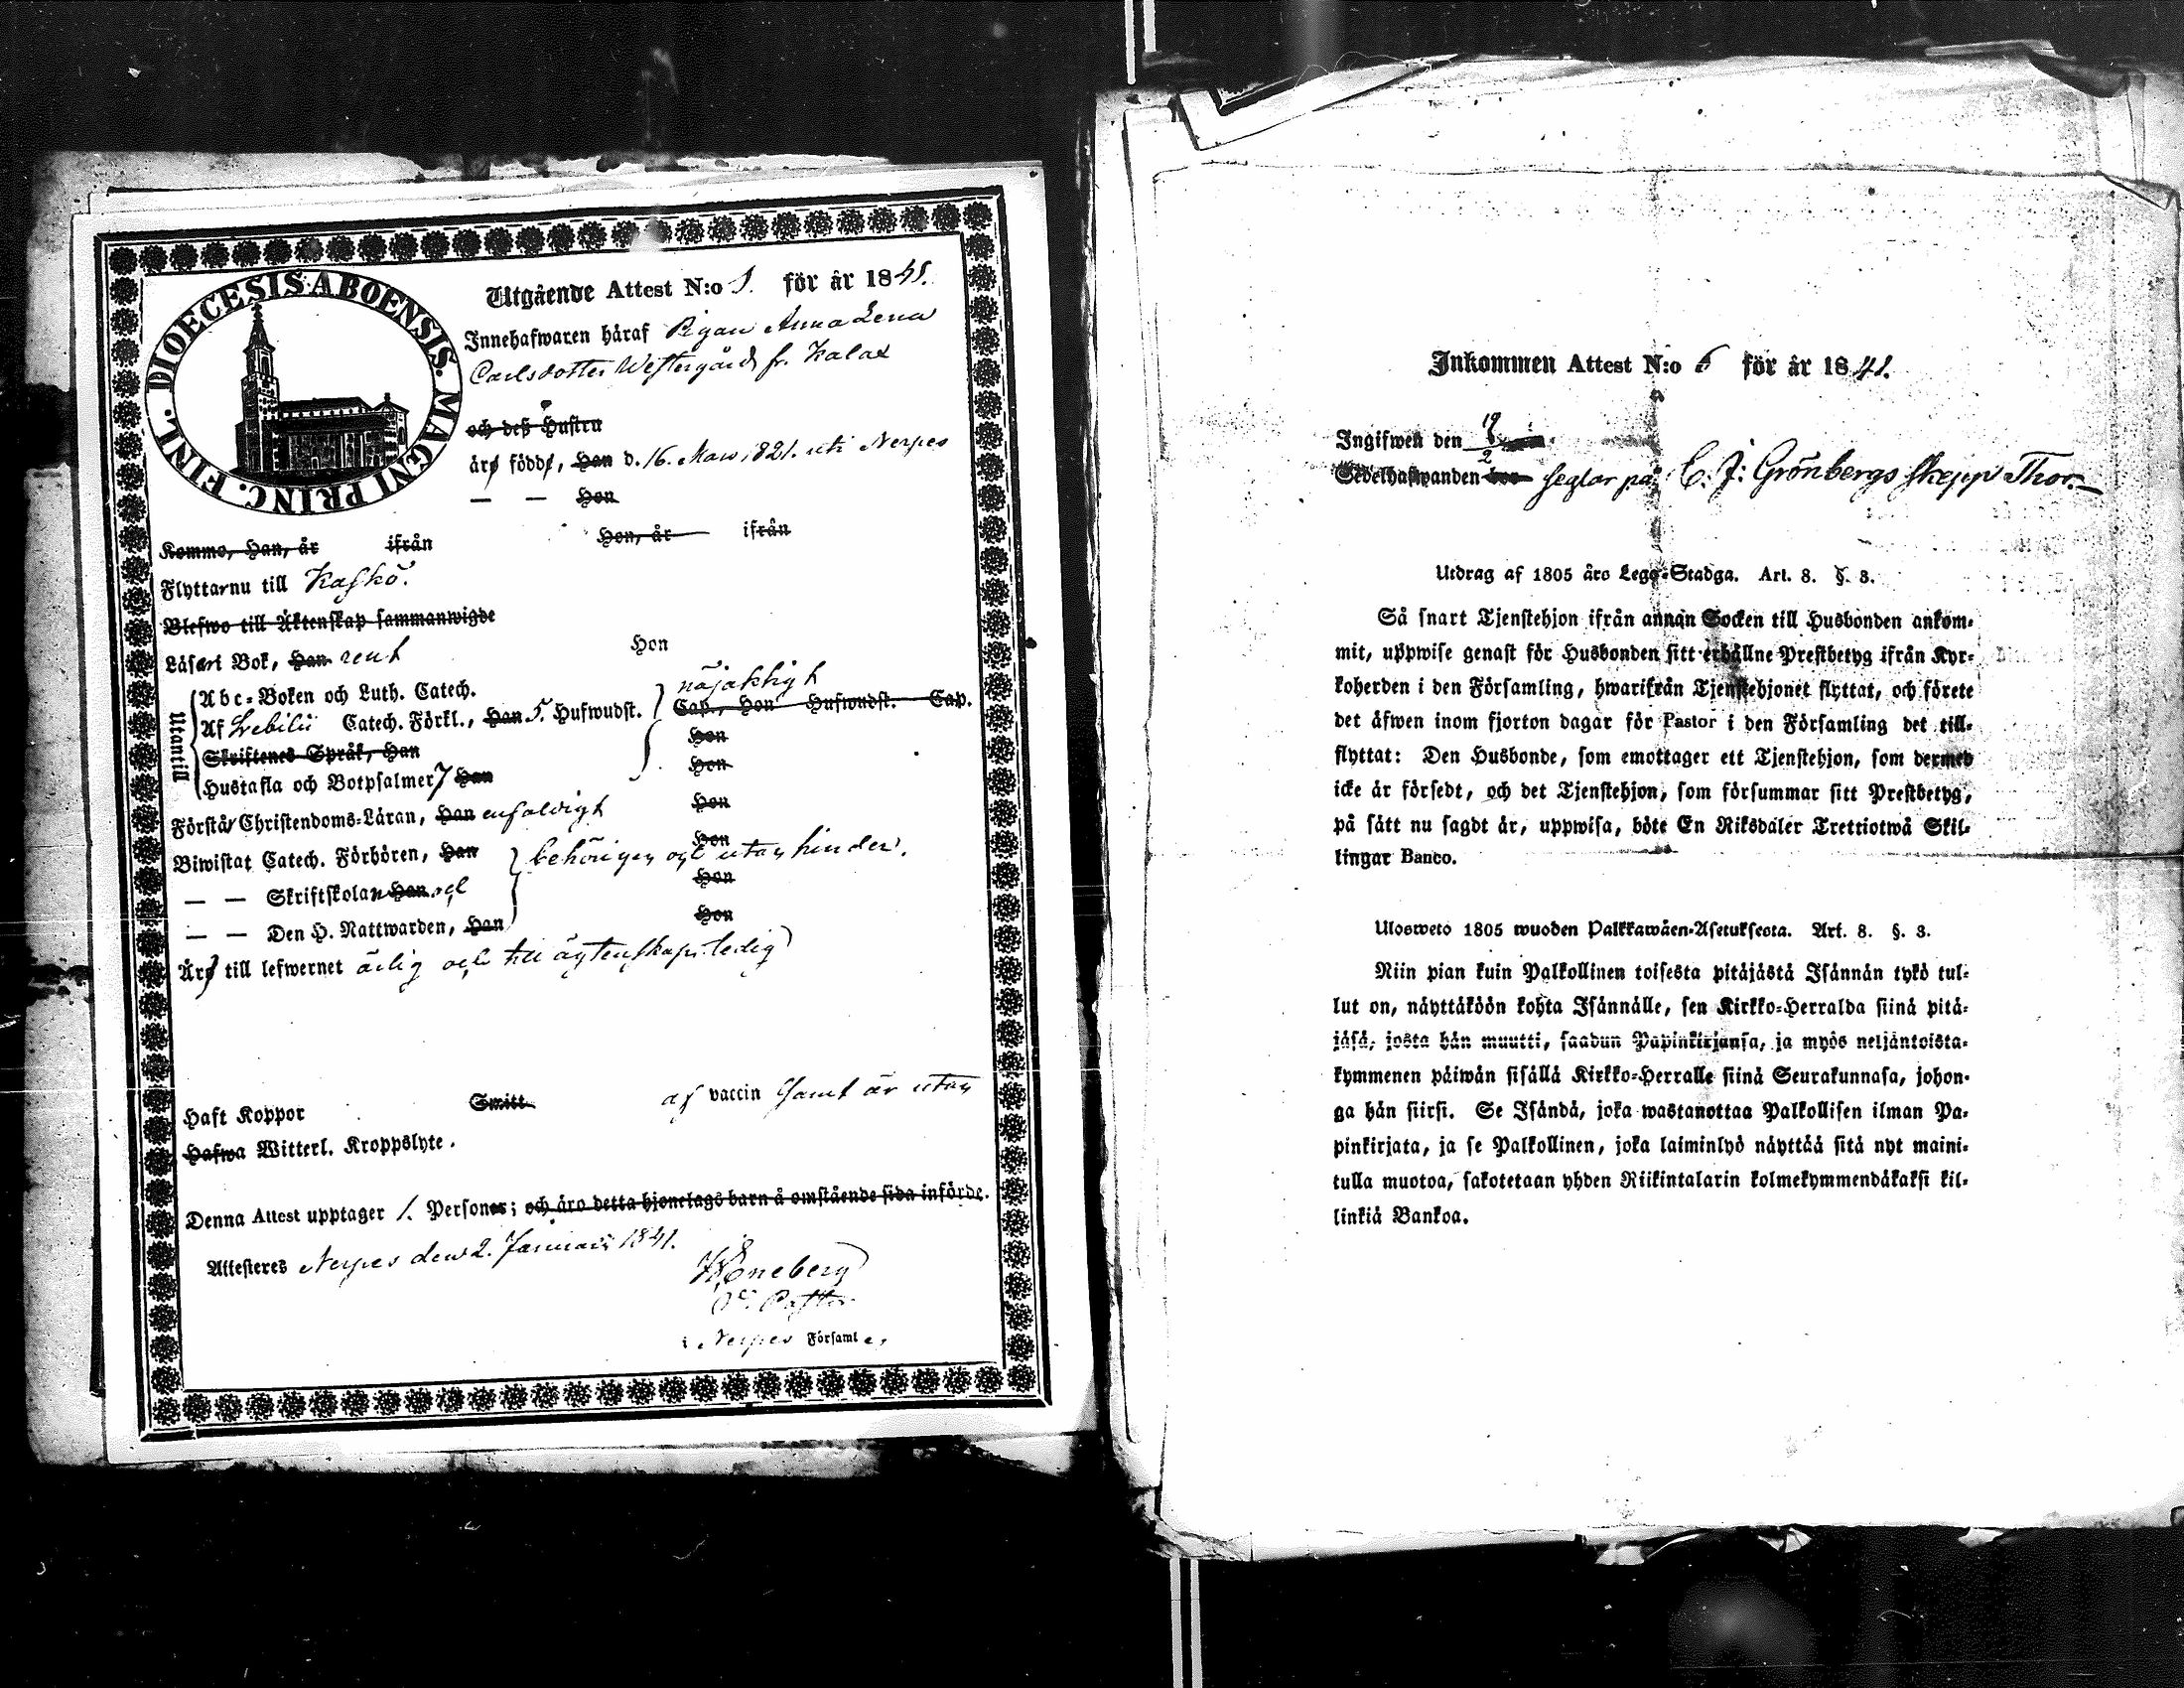 DIOECESIS ABOENSIS. MAGNI PRINC. FINL.
Utgående Attest N:o 1. för år 1841.
Innehafwaren häraf Pigan Anna Lena
Carlsdotter Westergård fr. Kalax
och deß Hustru
är född, Han d. 16. Mars 1821. uti Nerpes
— — Hon
Kommo, Han, år ifrån Hon, år ifrån
Flyttar nu till Kaskö.
Blefwo till Äktenskap sammanwigde
Läser i Bok, Han rent Hon
Utantill
Abc-Boken och Luth. Catech. nöjaktigt
Af Svebilii Catech. Förkl., Han 5. Hufwudst. Cap., Hon Hufwudst. Cap.
Skriftenes Språk, Han Hon
Hustafla och Botpsalmer 7 Han Hon
Förstår Christendoms-Läran, Han enfaldigt Hon
Biwistat Catech. Förhören, Han behörigen och utan hinder. Hon
— — Skriftskolan Han och Hon
— — Den H. Nattwarden, Han Hon
Är till lefwernet ärlig och till ägtenskap ledig
Haft Koppor Smitt af vaccin samt är utan
Hafwa Witterl. Kroppslyte.
Denna Attest upptager 1. Person; och äro detta hjonelags barn å omstående sida införde.
Attesteres Nerpes den 2. Januari 1841.
Kroneberg
Vc. Pastor
i Nerpes Församl
Inkommen Attest N:o 6 för år 1841.
Ingifwen den 19/2
Sedelhafwanden bor seglar på C. J: Grönbergs skepp Thor.—
Utdrag af 1805 års Lego-Stadga. Art. 8. §. 3.
Så snart Tjenstehjon ifrån annan Socken till Husbonden ankom-
mit, uppwise genast för Husbonden sitt erhållne Prestbetyg ifrån Kyr-
koherden i den Församling, hwarifrån Tjenstehjonet flyttat, och förete
det äfwen inom fjorton dagar för Pastor i den Församling det till-
flyttat: Den Husbonde, som emottager ett Tjenstehjon, som dermed
icke är försedt, och det Tjenstehjon, som försummar sitt Prestbetyg,
på sätt nu sagdt är, uppwisa, böte En Riksdaler Trettiotwå Skil-
lingar Banco.
Ulosweto 1805 wuoden Palkkawäen-Asetuksesta. Art. 8. §. 3.
Niin pian kuin Palkollinen toisesta pitäjästä Isännän tykö tul-
lut on, näyttäköön kohta Isännälle, sen Kirkko-Herralda siinä pitä-
jäsä, josta hän muutti, saadun Papinkirjansa, ja myös neljäntoista-
kymmenen päiwän sisällä Kirkko-Herralle siinä Seurakunnasa, johon-
ga hän siirsi. Se Isändä, joka wastanottaa Palkollisen ilman Pa-
pinkirjata, ja se Palkollinen, joka laiminlyö näyttää sitä nyt maini-
tulla muotoa, sakotetaan yhden Riikintalarin kolmekymmendäkaksi kil-
linkiä Bankoa.